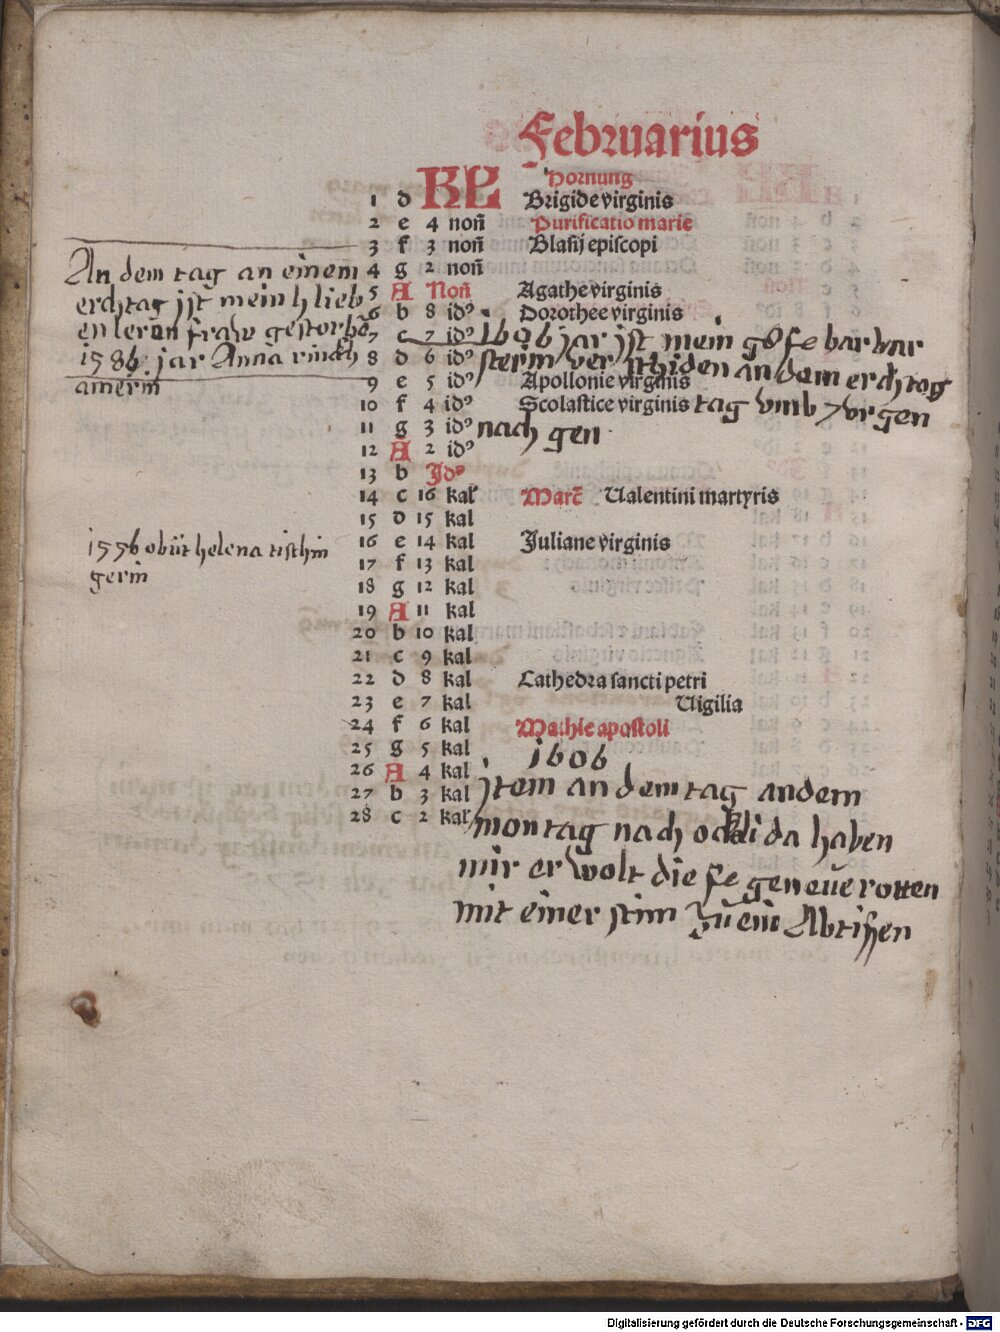 Februarius
KL Hornung
1 d Brigide virginis
2 e 4 noñ Purificatio marie
3 f 3 noñ Blasij episcopi
4 g 2 noñ
5 A Noñ Agathe virginis
6 b 8 idꝰ Dorothee virginis
7 c 7 idꝰ
8 d 6 idꝰ
9 e 5 idꝰ Apollonie virginis
10 f 4 idꝰ Scolastice virginis
11 g 3 idꝰ
12 A 2 idꝰ
13 b Jdꝰ
14 c 16 kal Marc̃ Ualentini martyris
15 d 15 kal
16 e 14 kal Juliane virginis
17 f 13 kal
18 g 12 kal
19 A 11 kal
20 b 10 kal
21 c 9 kal
22 d 8 kal Cathedra sancti petri
23 e 7 kal Uigilia
24 f 6 kal Mathie apostoli
25 g 5 kal
26 A 4 kal
27 b 3 kal
28 c 2 kal
An dem tag an einem
erchtag jst mein h lieb
en leran fraw gestorbē
1586 jar Anna
amerin
1606 jar jst mein
sterin ver schiden an dem erchtag
tag vmb 7 vr gen
nach gen
1556 obijt helena tischin
gerin
1606
jtem an dem tag an dem
montag nach da haben
mir er wolt die
mit einer stim zu ein Abtissen
Digitalisierung gefördert durch die Deutsche Forschungsgemeinschaft - DFG